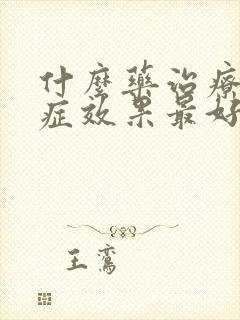 什麼藥治療
症效果最好
王鸞